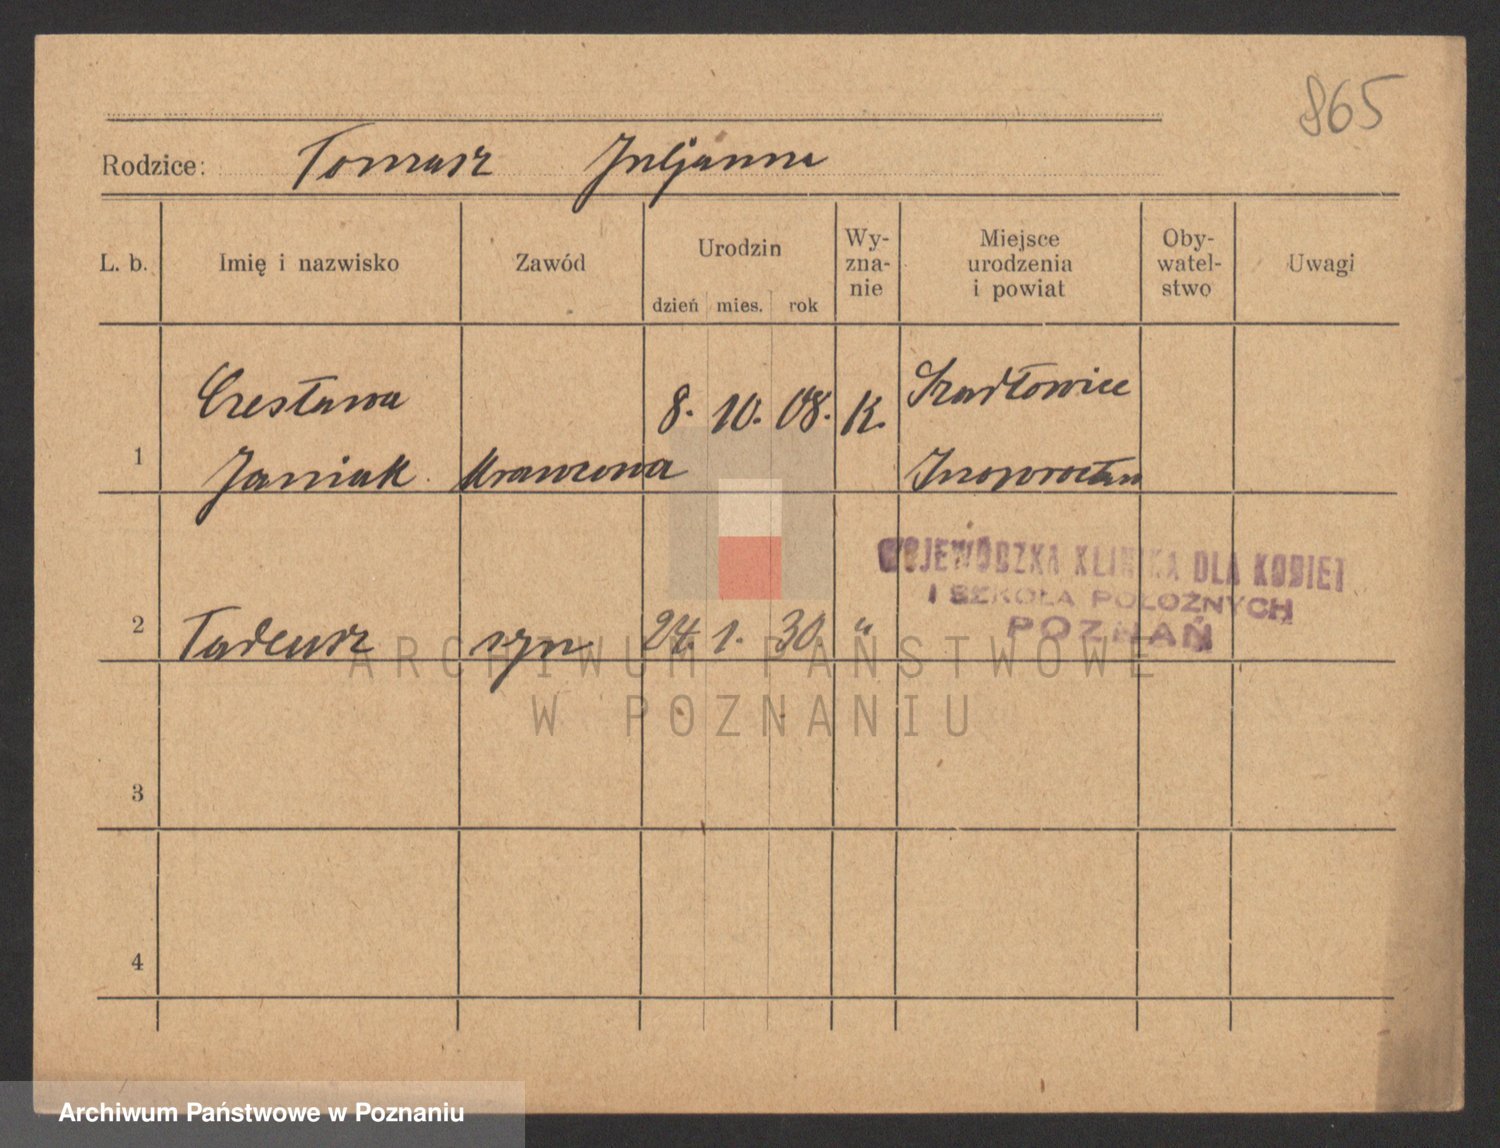 865
Rodzice: Tomasz Juljanna
L. b. Imię i nazwisko Zawód Urodzin dzień mies. rok Wy-zna-nie Miejsce urodzenia i powiat Oby-watel-stwo Uwagi
Czesława 8. 10. 08. K. Szadłowice
1 Janiak Krawcowa Inowrocław
WOJEWÓDZKA KLINIKA DLA KOBIET
I SZKOŁA POŁOŻNYCH
POZNAŃ
2 Tadeusz syn 24. 1. 30 "
ARCHIWUM PAŃSTWOWE
W POZNANIU
3
4
Archiwum Państwowe w Poznaniu